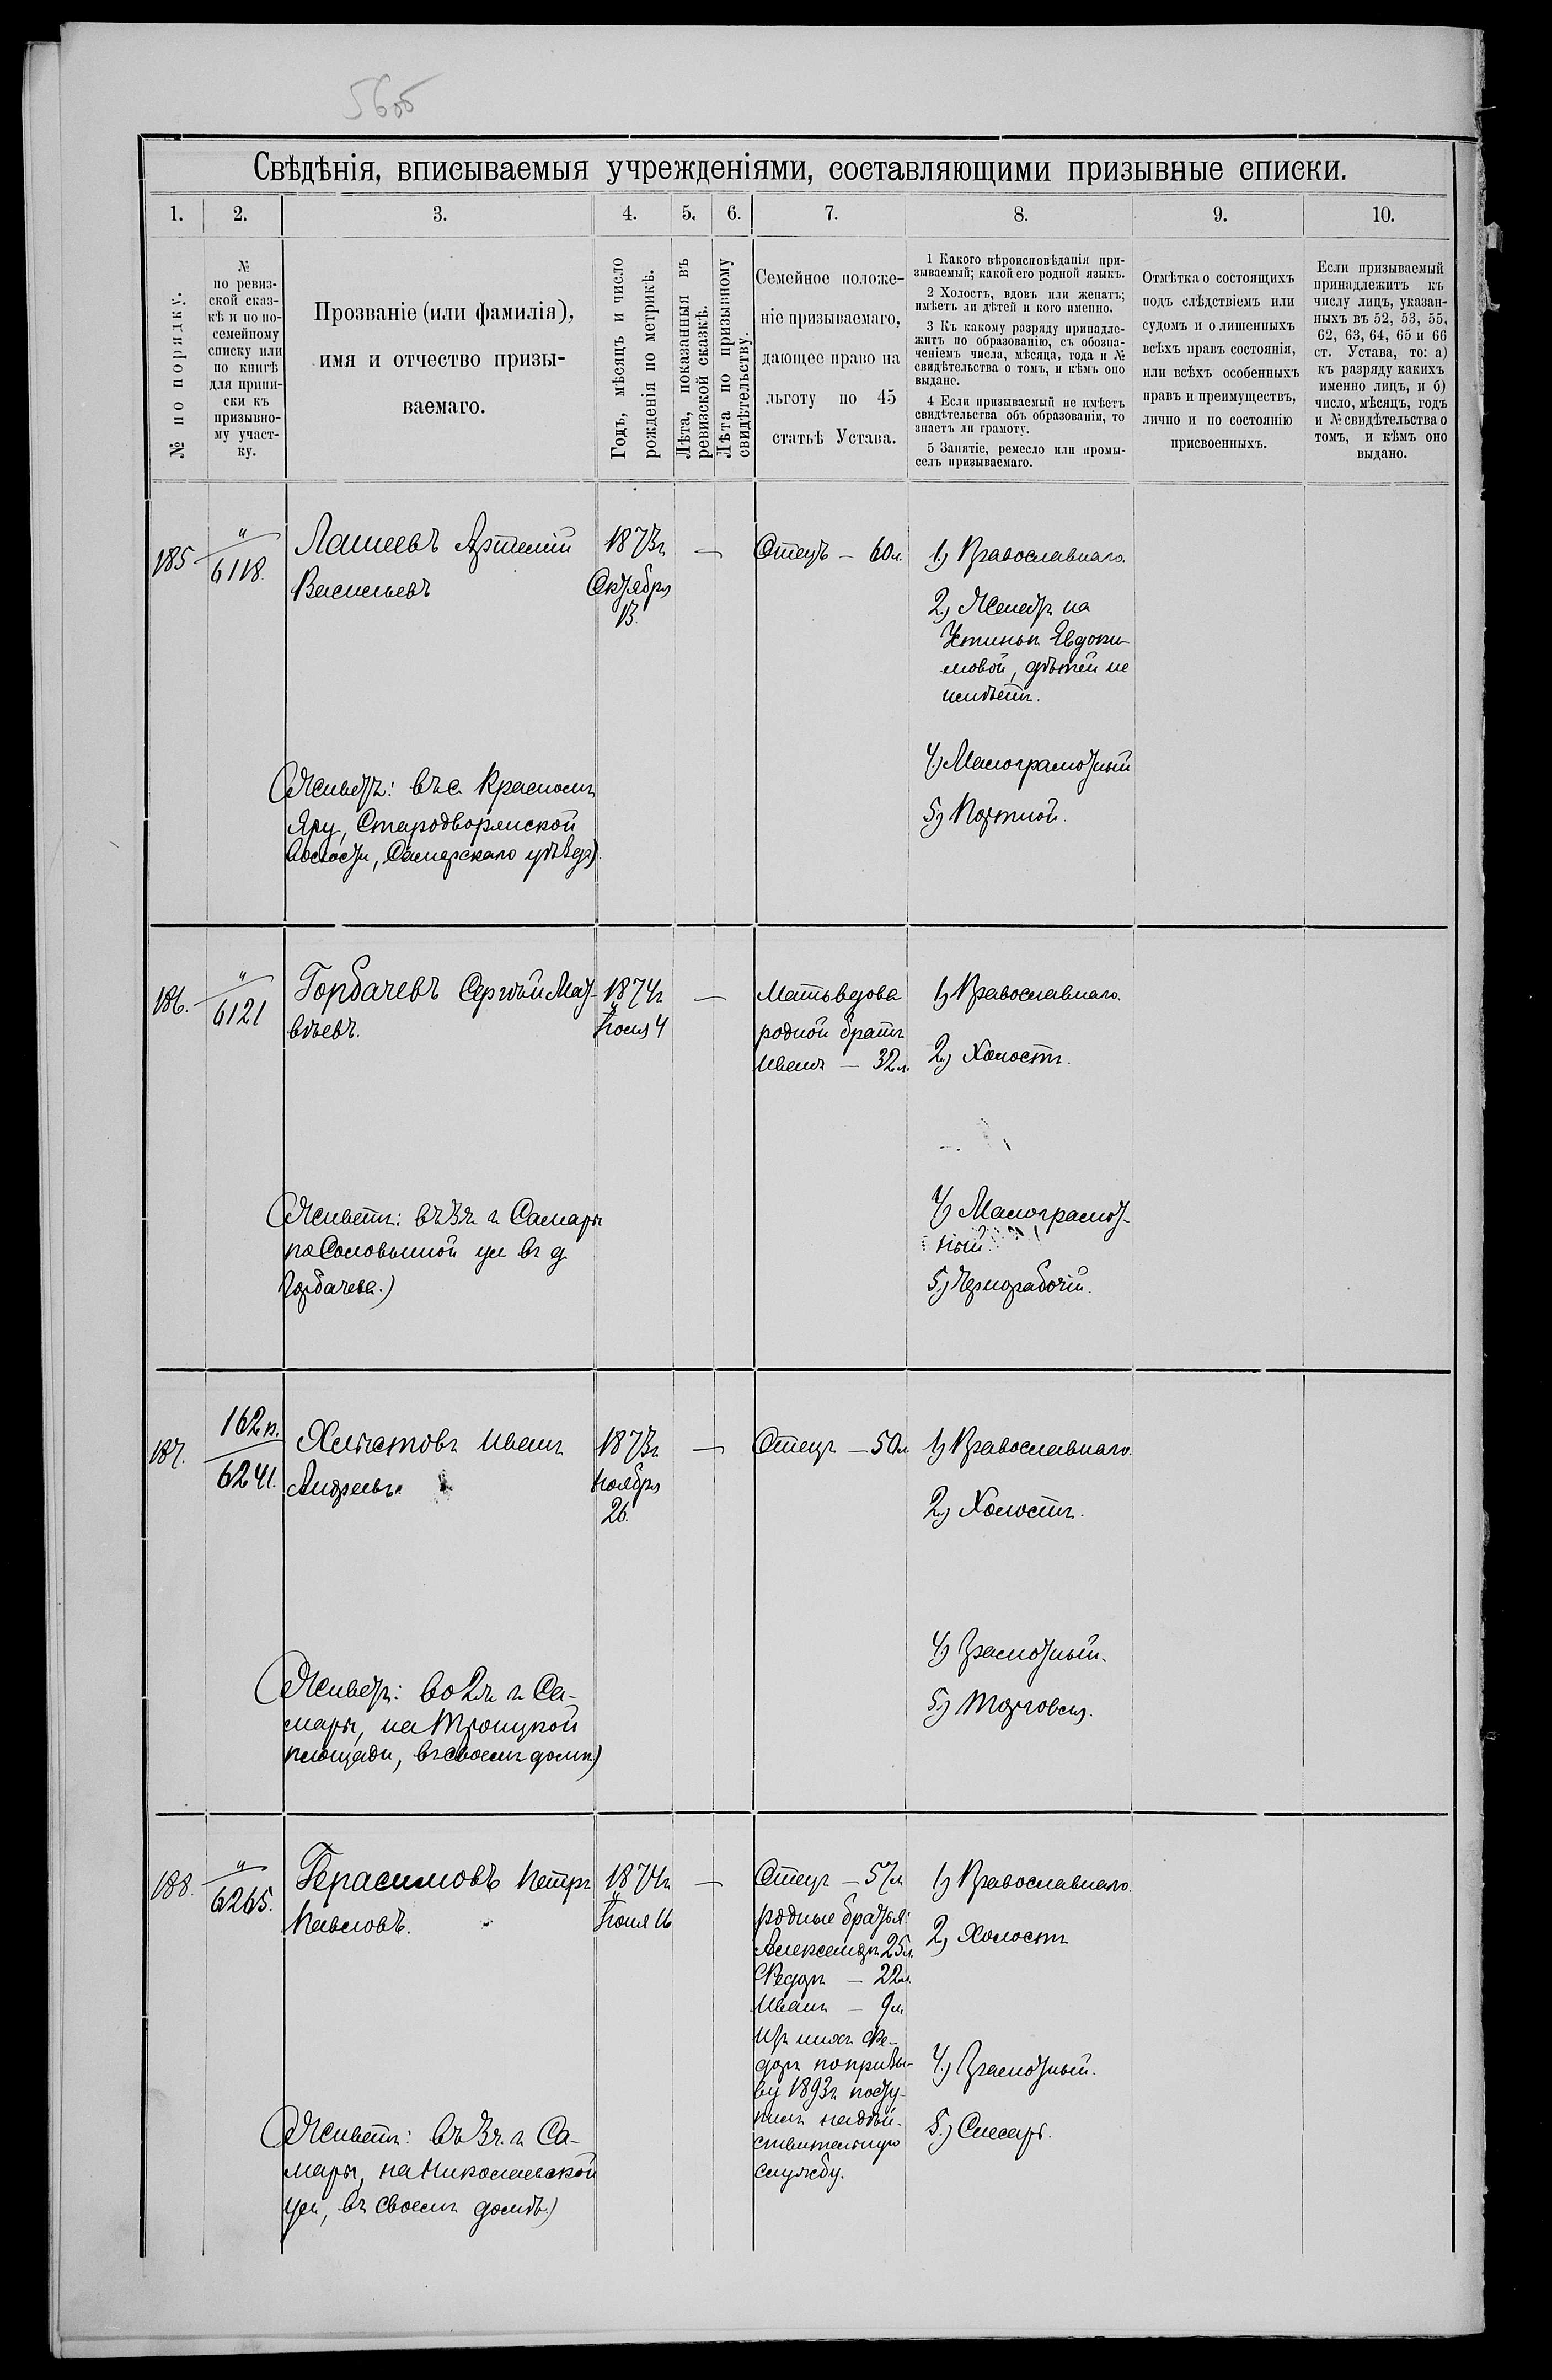 56об
Свѣдѣнія, вписываемыя учрежденіями, составляющими призывные списки.
1. 2. 3. 4. 5. 6. 7. 8. 9. 10.
№ по порядку.
№
по ревиз-
ской сказ-
кѣ и по по-
семейному
списку или
по книгѣ
для припи-
ски къ
призывно-
му участ-
ку.
Прозваніе (или фамилія),
имя и отчество призы-
ваемаго.
Годъ, мѣсяцъ и число
рожденія по метрикѣ.
Лѣта, показанныя въ
ревизской сказкѣ.
Лѣта по призывному
свидѣтельству.
Семейное положе-
ніе призываемаго,
дающее право на
льготу по 45
статьѣ Устава.
1 Какого вѣроисповѣданія при-
зываемый; какой его родной языкъ.
2 Холостъ, вдовъ или женатъ;
имѣетъ ли дѣтей и кого именно.
3 Къ какому разряду принадле-
житъ по образованію, съ обозна-
ченіемъ числа, мѣсяца, года и №
свидѣтельства о томъ, и кѣмъ оно
выдано.
4 Если призываемый не имѣетъ
свидѣтельства объ образованіи, то
знаетъ ли грамоту.
5 Занятіе, ремесло или промы-
селъ призываемаго.
Отмѣтка о состоящихъ
подъ слѣдствіемъ или
судомъ и о лишенныхъ
всѣхъ правъ состоянія,
или всѣхъ особенныхъ
правъ и преимуществъ,
лично и по состоянію
присвоенныхъ.
Если призываемый
принадлежитъ къ
числу лицъ, указан-
ныхъ въ 52, 53, 55,
62, 63, 64, 65 и 66
ст. Устава, то: а)
къ разряду какихъ
именно лицъ, и б)
число, мѣсяцъ, годъ
и № свидѣтельства о
томъ, и кѣмъ оно
выдано.
185
"
6118.
Лашеевъ Артемій
Васильевъ
(Живетъ: въ с. Красномъ
Яру, Стародворянской
волости, Самарскаго уѣзда).
1873г
Октября
13.
—
Отецъ – 60л.
1) Православнаго.
2) Женатъ на
Устиньи Евдоки-
мовой, дѣтей не
имѣетъ.
4) Малограмотный
5) Портной.
186.
"
6121
Горбачевъ Сергѣй Мат-
вѣевъ.
(Живетъ: въ 3ч г Самары
по Соловьиной ул въ д
Горбачева.)
1874г
Іюля 4
—
родной братъ
Иванъ – 32л.
1) Православнаго.
2) Холостъ.
4) Малограмот-
ный
5) Чернорабочій.
187.
162п.
6241.
Иванъ
Андреевъ
(Живетъ: во 2ч г Са-
мары, на Троицкой
площади, въ своемъ домѣ)
1873г
Ноября
26.
—
Отецъ – 50л
1) Православнаго.
2) Холостъ.
4) Грамотный.
5) Торговля.
188.
"
6265.
Герасимовъ Петръ
Павловъ.
(Живетъ: въ 3ч. г Са-
мары, на Николаевской
ул, въ своемъ домѣ.)
1874г
Іюня 16
—
Отецъ – 57л
родные братья:
Александръ 25л.
Ѳедоръ – 22л.
Иванъ – 9л.
Изъ нихъ Ѳе-
доръ по призы-
ву 1893г посту-
пилъ на дѣй-
ствительную
службу.
1) Православнаго.
2) Холостъ
4) Грамотный.
5.) Слесарь.